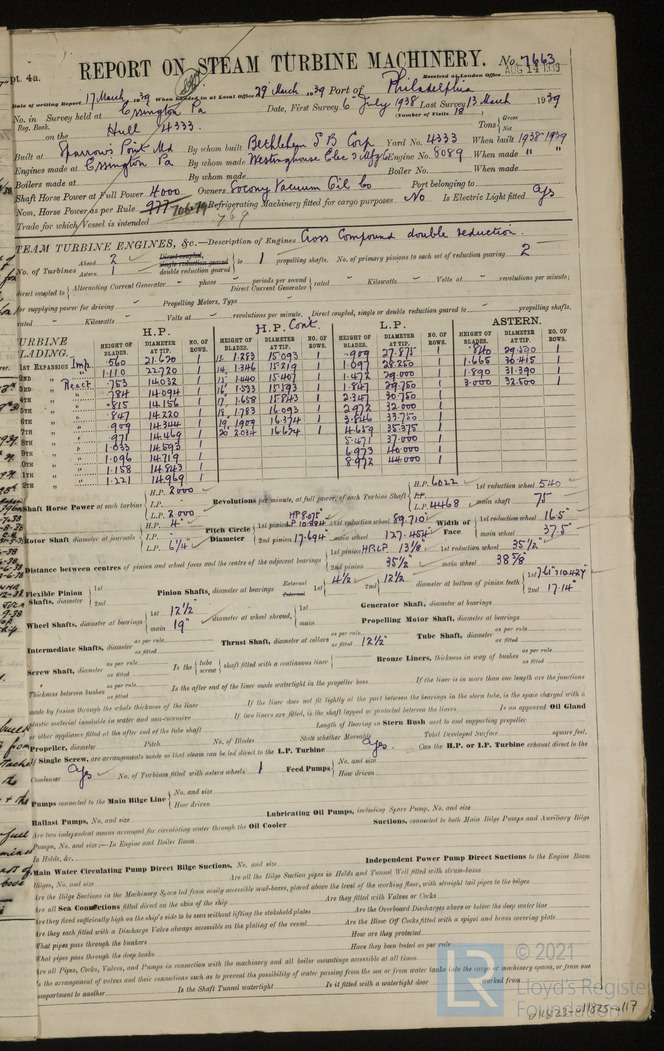 pt. 4a.
REPORT ON STEAM TURBINE MACHINERY. No. 7663
Received at London Office AUG 14 1939
Date of writing Report 17 March 1939 When handed in at Local Office 29 March 1939 Port of Philadelphia
No. in Reg. Book. Survey held at Essington Pa Date, First Survey 6 July 1938 Last Survey 13 March 1939
(Number of Visits 18
on the Hull 4333. Tons Gross Net
Built at Sparrows Point Md By whom built Bethlehem S B Corp Yard No. 4333 When built 1938-1939
Engines made at Essington Pa By whom made Westinghouse Elec & Mfg Co Engine No. 8089 When made " "
Boilers made at By whom made Boiler No. When made
Shaft Horse Power at Full Power 4000 Owners Socony Vacuum Oil Co Port belonging to
Nom. Horse Power as per Rule 977 706.79 Refrigerating Machinery fitted for cargo purposes No Is Electric Light fitted Yes
Trade for which Vessel is intended 769
STEAM TURBINE ENGINES, &c.—Description of Engines Cross Compound double reduction.
No. of Turbines Ahead 2 Astern 1 Direct coupled, single reduction geared double reduction geared to 1 propelling shafts. No. of primary pinions to each set of reduction gearing 2
direct coupled to Alternating Current Generator phase periods per second Direct Current Generator rated Kilowatts Volts at revolutions per minute;
for supplying power for driving Propelling Motors, Type
rated Kilowatts Volts at revolutions per minute. Direct coupled, single or double reduction geared to propelling shafts.
TURBINE BLADING. H.P. H.P. Cont. L.P. ASTERN.
HEIGHT OF BLADES. DIAMETER AT TIP. NO. OF ROWS. HEIGHT OF BLADES. DIAMETER AT TIP. NO. OF ROWS. HEIGHT OF BLADES. DIAMETER AT TIP. NO. OF ROWS. HEIGHT OF BLADES. DIAMETER AT TIP. NO. OF ROWS.
1ST EXPANSION Imp. .560 21.620 1 13. 1.283 15.093 1 .909 27.875 1 .840 29.530 1
2ND 1.110 22.720 1 14. 1.346 15.219 1 1.097 28.250 1 1.665 30.415 1
3RD React. .753 14.032 1 15. 1.440 15.407 1 1.472 29.000 1 1.890 31.390 1
4TH .784 14.094 1 16. 1.533 15.593 1 1.847 29.750 1 3.000 32.500 1
5TH .815 14.156 1 17. 1.658 15.843 1 2.347 30.750 1
6TH .847 14.220 1 18. 1.783 16.093 1 2.972 32.000 1
7TH .909 14.344 1 19. 1.909 16.374 1 3.846 33.750 1
8TH .971 14.469 1 20. 2.034 16.624 1 4.659 35.375 1
9TH 1.033 14.593 1 5.471 37.000 1
10TH 1.096 14.719 1 6.973 40.000 1
11TH 1.158 14.843 1 8.972 44.000 1
12TH 1.221 14.969 1
Shaft Horse Power at each turbine H.P. 2000 I.P. L.P. 2000 Revolutions per minute, at full power, of each Turbine Shaft H.P. 6022 I.P. L.P. 4468 1st reduction wheel 540 main shaft 75
Rotor Shaft diameter at journals H.P. 4" I.P. L.P. 6¼" Pitch Circle Diameter 1st pinion HP 8.075" LP 10.884" 2nd pinion 17.694" 1st reduction wheel 89.710" main wheel 127.454" Width of Face 1st reduction wheel 16.5" main wheel 37.5"
Distance between centres of pinion and wheel faces and the centre of the adjacent bearings 1st pinion HP & LP 13⅛" 2nd pinion 35½" 1st reduction wheel 35½" main wheel 38⅝"
Flexible Pinion Shafts, diameter 1st 2nd Pinion Shafts, diameter at bearings External Internal 1st 4½ 2nd 12½ diameter at bottom of pinion teeth 1st 2nd 17.14"
Wheel Shafts, diameter at bearings 1st 12½" main 19" diameter at wheel shroud, 1st main Generator Shaft, diameter at bearings
Propelling Motor Shaft, diameter at bearings
Intermediate Shafts, diameter as per rule as fitted Thrust Shaft, diameter at collars as per rule as fitted 12½" Tube Shaft, diameter as per rule as fitted
Screw Shaft, diameter as per rule as fitted Is the tube screw shaft fitted with a continuous liner Bronze Liners, thickness in way of bushes as per rule as fitted
Thickness between bushes as per rule as fitted Is the after end of the liner made watertight in the propeller boss If the liner is in more than one length are the junctions
made by fusion through the whole thickness of the liner If the liner does not fit tightly at the part between the bearings in the stern tube, is the space charged with a
plastic material insoluble in water and non-corrosive If two liners are fitted, is the shaft lapped or protected between the liners Is an approved Oil Gland
or other appliance fitted at the after end of the tube shaft Length of Bearing in Stern Bush next to and supporting propeller
Propeller, diameter Pitch No. of Blades State whether Moveable Total Developed Surface square feet.
If Single Screw, are arrangements made so that steam can be led direct to the L.P. Turbine Yes. Can the H.P. or I.P. Turbine exhaust direct to the
Condenser Yes No. of Turbines fitted with astern wheels 1 Feed Pumps No. and size How driven
Pumps connected to the Main Bilge Line No. and size How driven
Ballast Pumps, No. and size Lubricating Oil Pumps, including Spare Pump, No. and size
Are two independent means arranged for circulating water through the Oil Cooler Suctions, connected to both Main Bilge Pumps and Auxiliary Bilge
Pumps, No. and size:—In Engine and Boiler Room
In Holds, &c.
Main Water Circulating Pump Direct Bilge Suctions, No. and size Independent Power Pump Direct Suctions to the Engine Room
Bilges, No. and size Are all the Bilge Suction pipes in Holds and Tunnel Well fitted with strum-boxes
Are the Bilge Suctions in the Machinery Space led from easily accessible mud-boxes, placed above the level of the working floor, with straight tail pipes to the bilges
Are all Sea Connections fitted direct on the skin of the ship Are they fitted with Valves or Cocks
Are they fixed sufficiently high on the ship's side to be seen without lifting the stokehold plates Are the Overboard Discharges above or below the deep water line
Are they each fitted with a Discharge Valve always accessible on the plating of the vessel Are the Blow Off Cocks fitted with a spigot and brass covering plate
What pipes pass through the bunkers How are they protected
What pipes pass through the deep tanks Have they been tested as per rule
Are all Pipes, Cocks, Valves, and Pumps in connection with the machinery and all boiler mountings accessible at all times
Is the arrangement of valves and their connections such as to prevent the possibility of water passing from the sea or from water tanks into the cargo or machinery spaces, or from one
compartment to another Is the Shaft Tunnel watertight Is it fitted with a watertight door worked from
© 2021
LR
Lloyd's Register
Foundation
011823-011825-0117